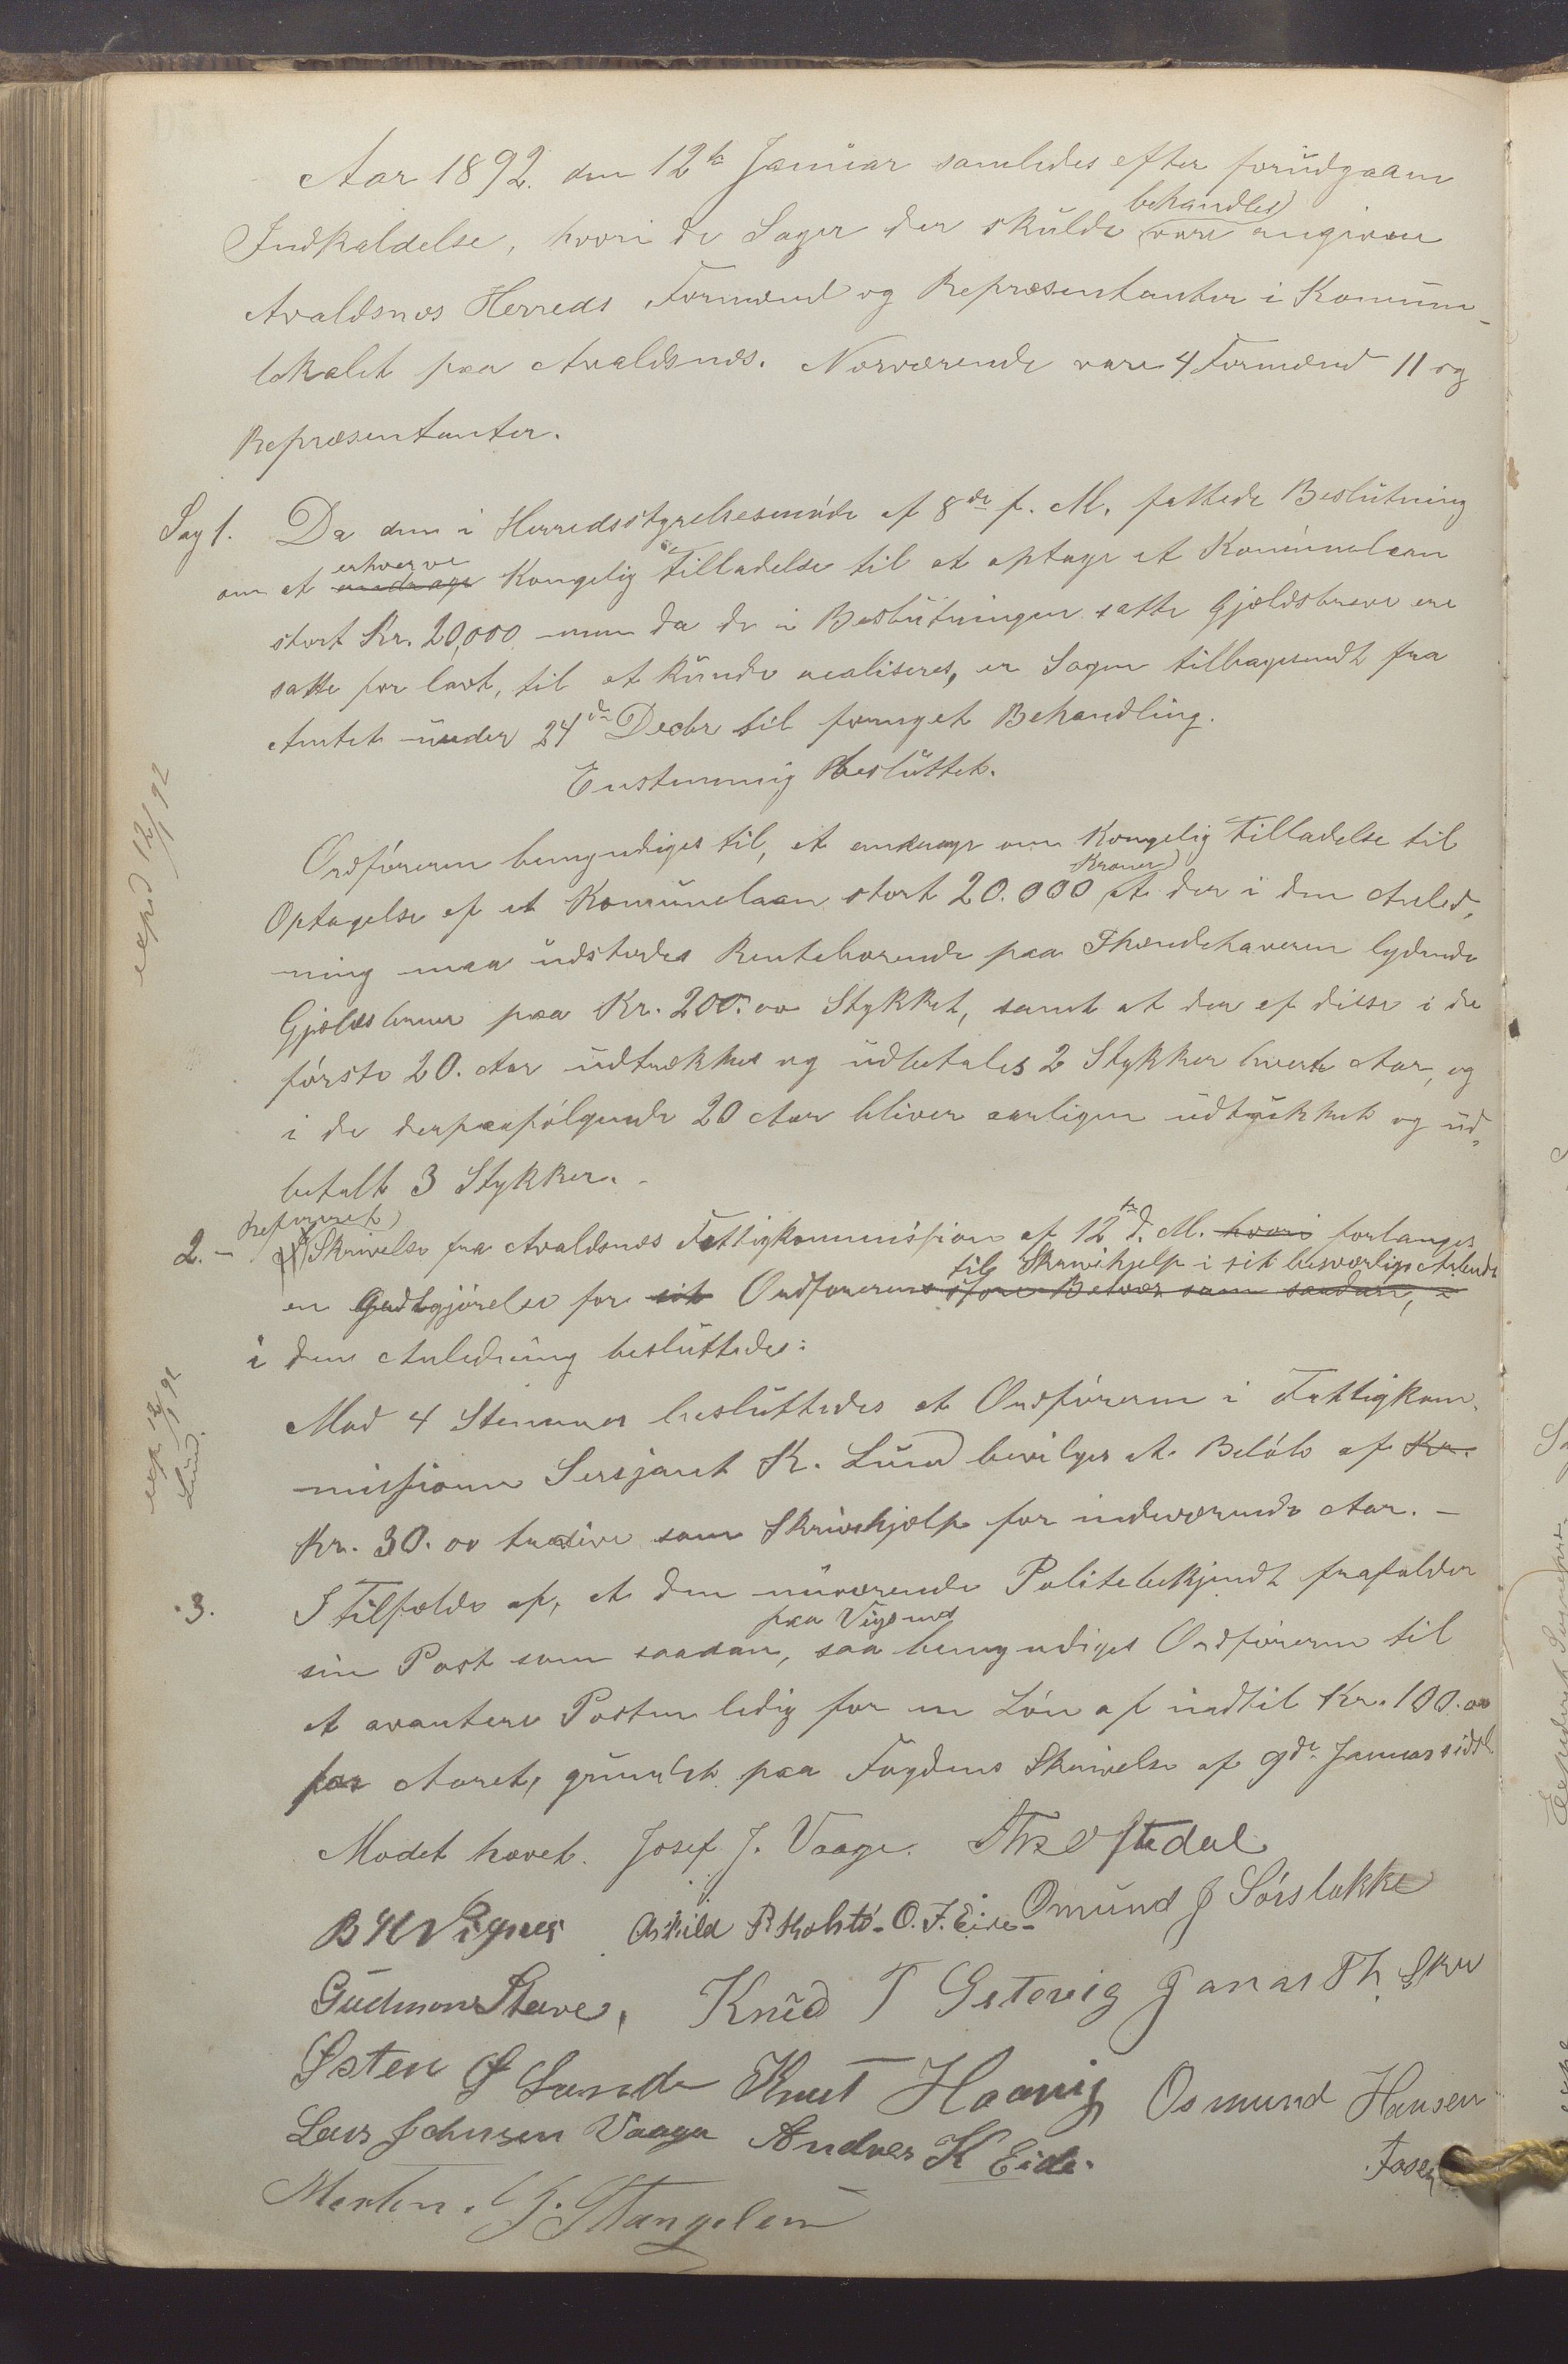 Aar 1892. den 12te Januar samledes efter forudgaaen
Indkaldelse, hvori de Sager der skulde behandles vare angivne
Avaldsnes Herreds Formænd og Repræsentanter i Komune-
lokalet paa Avaldsnes. Nærværende vare 4 Formænd 11 og
Repræsentanter.
Sag 1. Da den i Herredsstyrelsesmøde af 8de f. M. fattede Beslutning
om at erhverve andrage Kongelig Tilladelse til at optage et Komunelaan
stort Kr. 20,000 men da de i Beslutningen satte Gjældsbreve ere
satte for lavt, til at kunde realiseres, er Sagen tilbagesendt fra
Amtet under 24de Decbr til fornyet Behandling.
Enstemmig Besluttet.
Ordføreren bemyndiges til, at andrage om Kongelig Tilladelse til
Optagelse af et Komunelaan stort 20.000 Kroner at der i den Anled-
ning maa udstedes Rentebærende paa Ihændehaveren lydende
Gjældsbreve paa Kr. 200.00 Stykket, samt at der af disse i de
første 20. Aar udtrækkes og udbetales 2 Stykker hvert Aar, og
i de derpaafølgende 20 Aar bliver aarligen udtrukket og ud-
betalt 3 Stykker.
exped 12/1 92
2. - Refereret Skrivelse fra Avaldsnes Fattigkommission af 12te d. M. hvori forlanges
en Godtgjørelse for sit Ordførerens store Besvær som saadan, til Skrivehjelp i sit besværlige Arbeide
i den Anledning besluttedes:
Mod 4 Stemmer besluttedes at Ordføreren i Fattigkom-
missionen Sersjant K. Lund bevilges et Beløb af Kr.
Kr. 30.00 tredive som Skrivehjælp for indeværende Aar. -
exp. 12/1 92
Lund.
3. I Tilfælde af, at den nuværende Politibetjent frafalder
sin Post som saadan paa Vigsnes, saa bemyndiges Ordføreren til
at avantere Posten ledig for en Løn af indtil Kr. 100.00
for Aaret, grundet paa Fogdens Skrivelse af 9de Januar sidstl.
Mødet hævet. Josef J. Vaage. Ths Oftedal
B H Vignes Askild P. Kolstø. O. J. Eide Omund J Sørslokke
Gudmon Stave, Knud T Getevig Jonas Th. Skee
Østen O Sunde Knut Haavig Osmund Hansen
Fosen
Lars Johnsen Vaage Andres K Eide.
Morten J. Stangeland